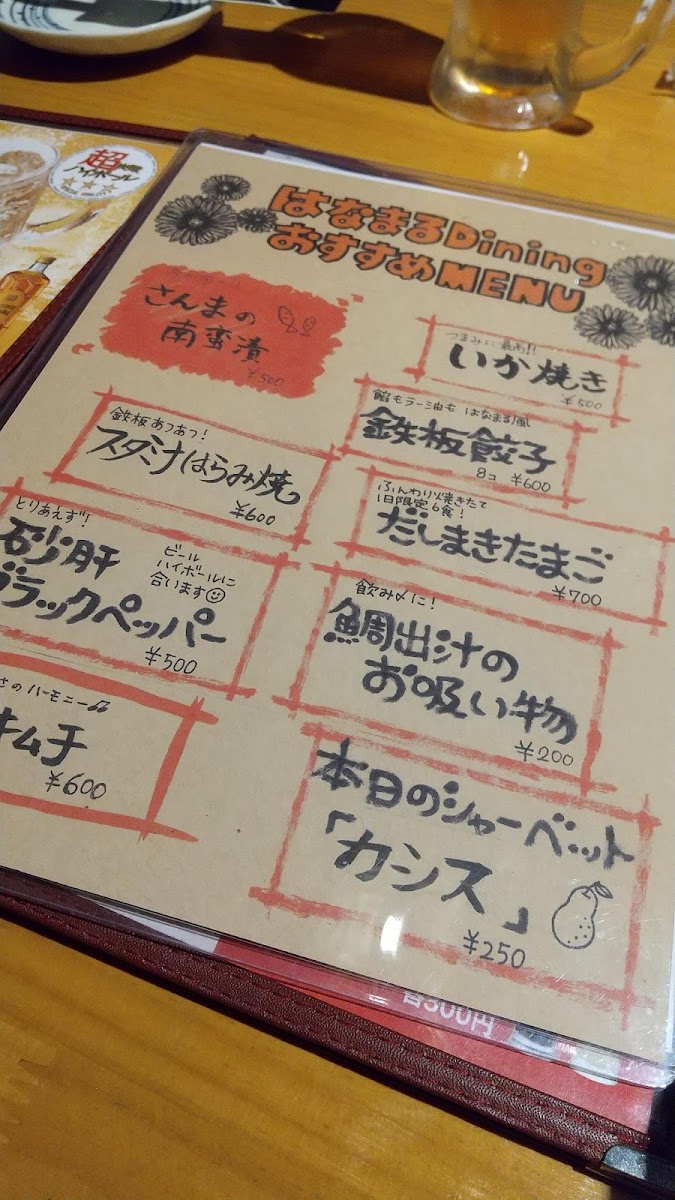 超炭酸
ハイボール
はなまるDining
おすすめMENU
さんまの
南蛮漬
¥500
つまみに最高!!
いか焼き
¥500
鉄板あつあつ!
スタミナはらみ焼
¥600
餡もラー油も はなまる風
鉄板餃子
8コ ¥600
ふんわり焼きたて
1日限定6食!
だしまきたまご
¥700
とりあえず!
砂肝
ブラックペッパー
ビール
ハイボールに
合います
¥500
飲み〆に!
鯛出汁の
お吸い物
¥200
さのハーモニー♫
キムチ
¥600
本日のシャーベット
「カシス」
¥250
各300円